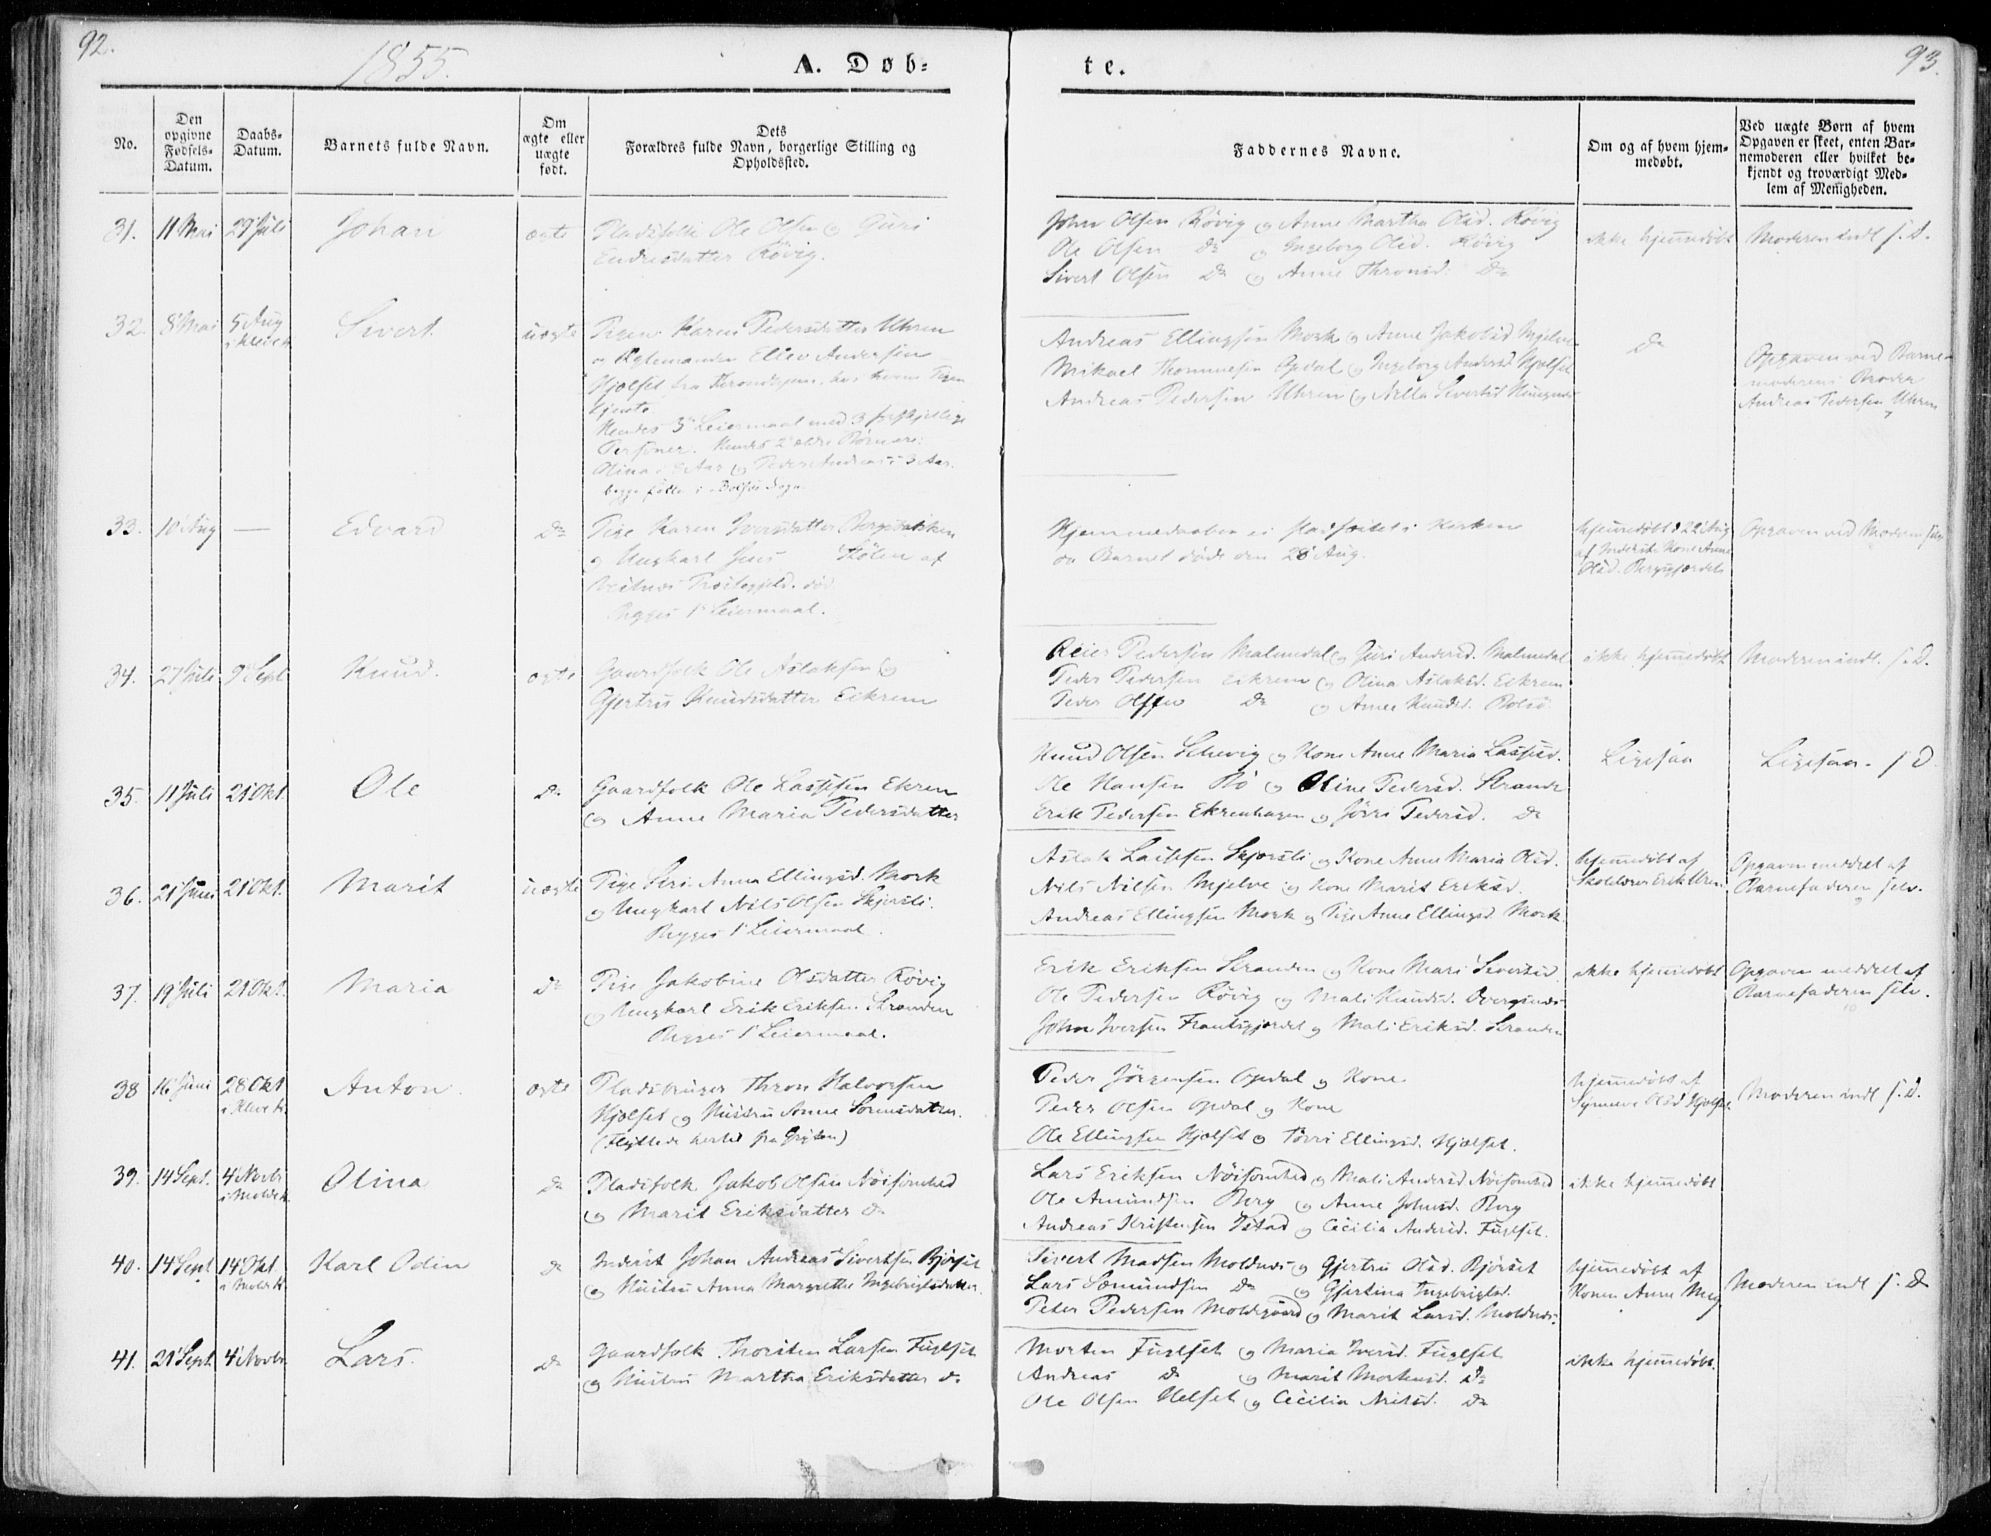 92.
1855.
A. Døb-
te.
93.
No.
Den opgivne Fødsels-Datum.
Daabs-Datum.
Barnets fulde Navn.
Om ægte eller uægte født.
Dets Forældres fulde Navn, borgerlige Stilling og Opholdssted.
Faddernes Navne.
Om og af hvem hjemmedøbt.
Ved uægte Børn af hvem Opgaven er skeet, enten Barnemoderen eller hvilket bekjendt og troværdigt Medlem af Menigheden.
31. 11 Mai 29 Juli Johan ægte Pladsfolk Ole Olsen og Guri
Endresdatter Røvig.
John Olsen Røvig og Anne Martha Olsd. Røvig
Ole Olsen Do og Ingeborg Olsd. Røvig
Sivert Olsen Do og Anne Thronsd. Do
ikke hjemmedøbt
Moderen indl. s. D.
32. 8 Mai 5 Aug i Kleive K. Sivert uægte Pigen Karen Pedersdatter Uhren
og Enkemanden Ellev Andersen
Hjelset fra Throndhjem, hos hvem Pigen
tjente
Hendes 3die Leiermaal med 3 forskjellige
Personer. Hendes 2 ældre Børn ere:
Olina 8 Aar og Peder Andreas 3 Aar.
begge fødte i Bolsø Sogn
Andreas Ellingsen Mork og Anne Jakobsd. Mjelve
Mikael Thommesen Opdal og Ingeborg Andersd. Hjelset
Andreas Pedersen Uhren og Sivertsd.
Do
Opgaven ved Barne-
moderens Broder
Andreas Pedersen Uhren
33. 10 Aug — Edvard Do Pige Karen Iversdatter
og Ungkarl Jens Stølen af
Veitnes Præstegjeld. død
Begges 1ste Leiermaal.
Hjemmedaaben ei stadfæstet i Kirken
da Barnet døde den 28 Aug.
hjemmedøbt d 22 Aug
af Inderst Kone Anne
Olsd.
Opgaven ved Moderen selv
34. 27 Juli 9 Sept Knud. ægte Gaardfolk Ole Aslaksen og
Gjertru Knudsdatter Eikrem
Reier Pedersen Malmedal og Guri Andersd. Malmedal
Peder Pedersen Eikrem og Olina Aslaksd. Eikrem
Peder Olsen Do og Anne Knudsd. Bolsø
ikke hjemmedøbt
Moderen indl. s. D.
35. 11 Juli 21 Okt. Ole Do Gaardfolk Ole Lassesen Ekrem
og Anne Maria Pedersdatter
Knud Olsen og Kone Anne Maria Lassesd.
Ole Hansen Bø og Oline Pedersd. Strande
Erik Pedersen Ekremhagen og Jørri Pedersd. Do
Ligesaa
Ligesaa. s D.
36. 21 Juni 21 Okt. Marit uægte Pige Seri. Anna Ellingsd. Mork
og Ungkarl Nils Olsen Skjorsli.
Begges 1ste Leiermaal.
Aslak Lassesen Skjorsli og Kone Anne Maria Olsd.
Nils Nilsen Mjelve og Kone Marit Eriksd.
Andreas Ellingsen Mork og Pige Anne Ellingsd. Mork
hjemmedøbt af
Skolelærer Erik Uren.
Opgaven meddelt af
Barnefaderen selv.
37. 19 Juli 21 Okt. Maria Do Pige Jakobine Olsdatter Røvig
og Ungkarl Erik Eriksen Stranden
Begges 1ste Leiermaal.
Erik Eriksen Stranden og Kone Mari Sivertsd
Ole Pedersen Røvig og Mali Knudsd.
John Iversen Frantsgjerdet og Mali Eriksd. Stranden
ikke hjemmedøbt
Opgaven meddelt af
Barnefaderen selv.
38 16 Juni 28 Okt. i Kleve K. Anton. ægte Pladsbruger Thron Halvorsen
Hjelset og Hustru Anne Sørensdatter.
(flyttede hertil fra Grytten)
Peder Jørgensen Opdal og Kone.
Peder Olsen Opdal og Kone
Ole Ellingsen Hjelset og Jørri Ellingsd. Hjelset.
hjemmedøbt af
Synneve Olsd Hjelset
Moderen indl s. D.
39. 14 Sept. 4 Novbr i Molde K. Olina Do Pladsfolk Jakob Olsen Nøisomhed
og Marit Eriksdatter Do
Lars Eriksen Nøisomhed og Mali Andersd Nøisomhed
Ole Amundsen Berg og Anne Johnsd. Berg
Andreas Kristensen Istad og Cecilia Andersd. Fuglset.
ikke hjemmedøbt
40. 14 Sept. 14 Okt. i Molde K. Karl Odin Do Inderst Johan Andreas Sivertsen Bjørset
og Hustru Anna Margrethe Ingebrigtsdatter.
Sivert Madsen Moldnes og Gjertru Olsd. Bjørset
Lars Sæmundsen Do og Gjertina Ingebrigtsd.
Peter Pedersen Moldegaard og Marit Larsd. Moldnes.
hjemmedøbt af
Konen Anne Mey
Moderen indl s. D
41. 21 Sept. 4 Novbr. Lars. Do Gaardfolk Thorsten Larsen Fuglset
og Hustru Martha Eriksdatter Do
Morten Fuglset og Maria Iversd. Fuglset
Andreas Do og Marit Mortensd. Do
Ole Olsen Helset og Cecilia Do
ikke hjemmedøbt.